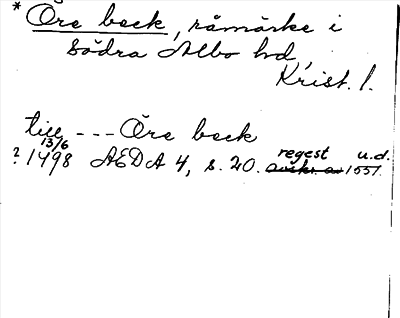 * Öre beck, råmärke i
Södra Albo hd,
Krist. l.
till --- Öre beck
? 13/6 1498 AEDA 4, s. 20. regest u.d. 1551.